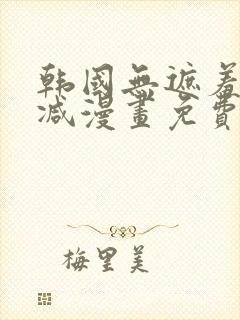 韩國無遮羞
减漫畫免費
梅里美